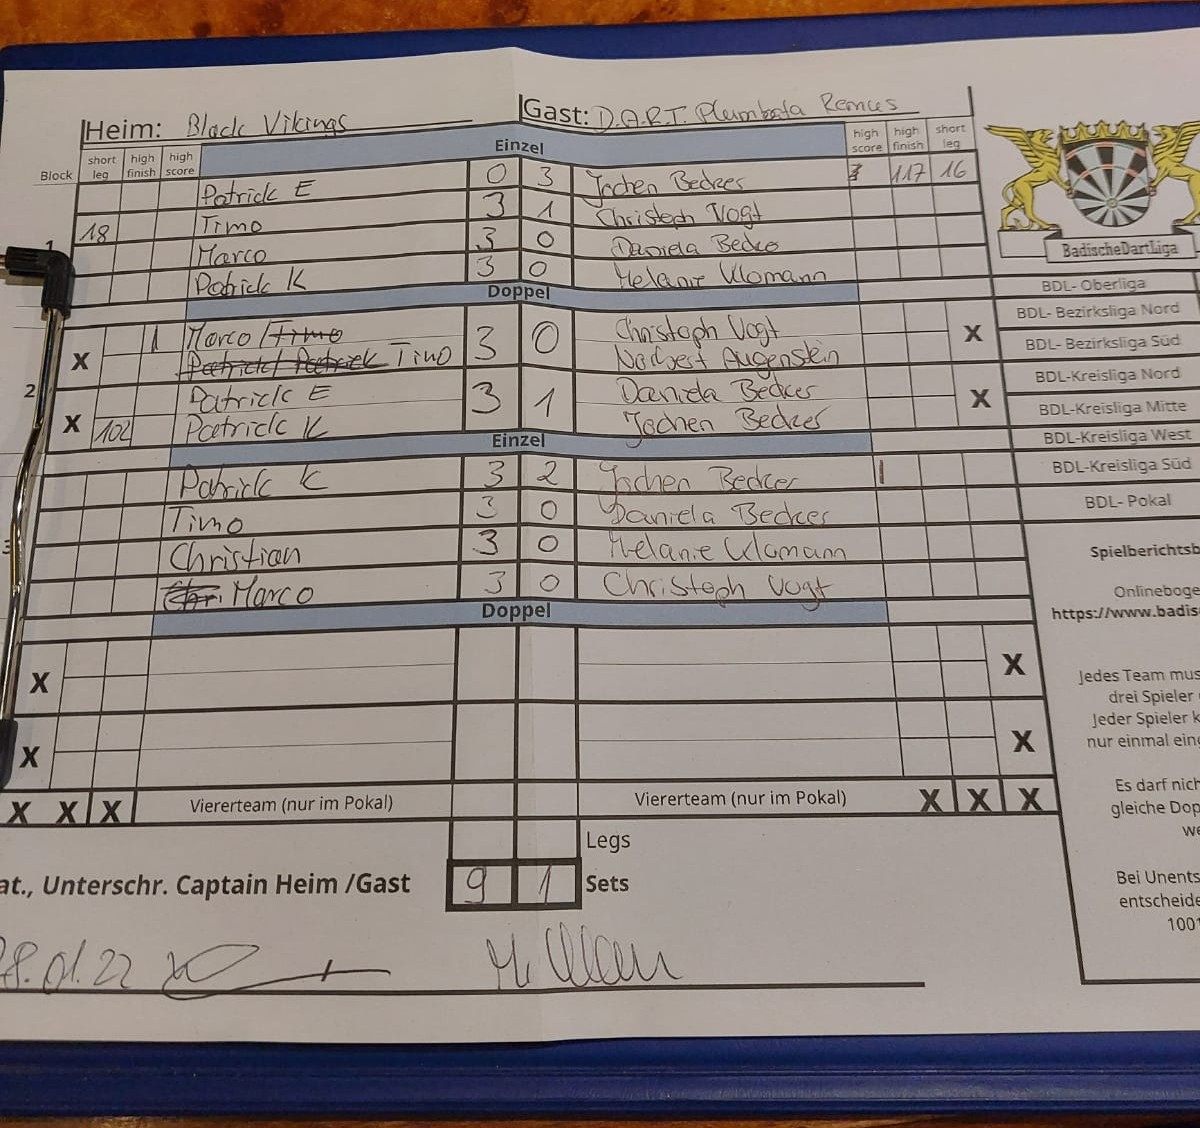 Heim: Black Vikings Gast: D.A.R.T. Plumbata Remus
Block short leg high finish high score Einzel high score high finish short leg
1
Patrick E 0 3 Jochen Becker 117 16
18 Timo 3 1 Christoph Vogt
Marco 3 0 Daniela Becker
Patrick K 3 0 Melanie Klomann
Doppel
2
X | Marco / Timo 3 0 Christoph Vogt X
Patrick / Patrick Timo Norbert Augenstein
X Patrick E 3 1 Daniela Becker X
102 Patrick K Jochen Becker
Einzel
3
Patrick K 3 2 Jochen Becker |
Timo 3 0 Daniela Becker
Christian 3 0 Melanie Klomann
Chri. Marco 3 0 Christoph Vogt
Doppel
X X
X X
X X X Viererteam (nur im Pokal) Viererteam (nur im Pokal) X X X
Legs
at., Unterschr. Captain Heim /Gast 9 1 Sets
28.01.22
BadischeDartLiga
BDL- Oberliga
BDL- Bezirksliga Nord
BDL- Bezirksliga Süd
BDL-Kreisliga Nord
BDL-Kreisliga Mitte
BDL-Kreisliga West
BDL-Kreisliga Süd
BDL- Pokal
Spielberichtsb
Onlineboge
https://www.badis
Jedes Team mus
drei Spieler
Jeder Spieler k
nur einmal eing
Es darf nich
gleiche Dop
we
Bei Unents
entscheide
1001